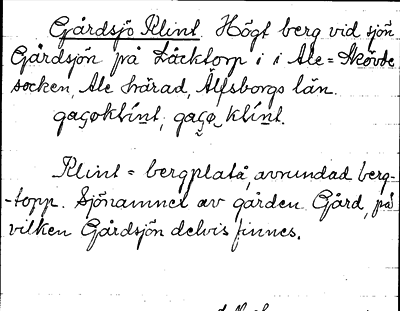 Gårdsjö Klint Högt berg vid sjön
Gårdsjön på Läcktorp i i Ale=Skövde
socken, Ale härad, Älfsborgs län.
Klint = bergplatå, avrundad berg-
-topp. Sjönamnet av gården Gård, på
vilken Gårdsjön delvis finnes.